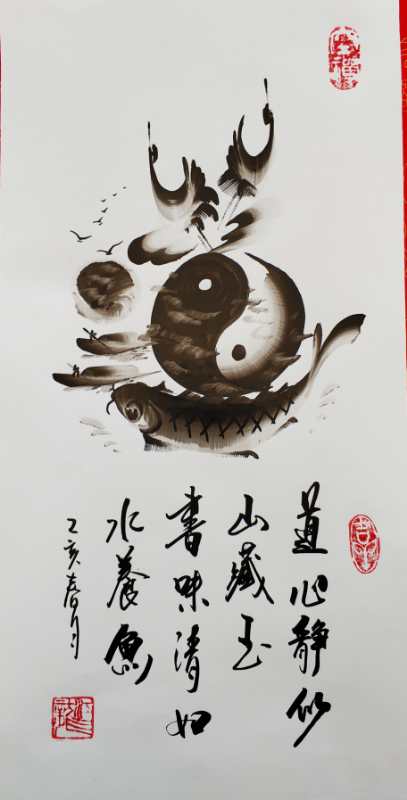 道心静似
山藏玉
書味清如
水養魚
乙亥春月